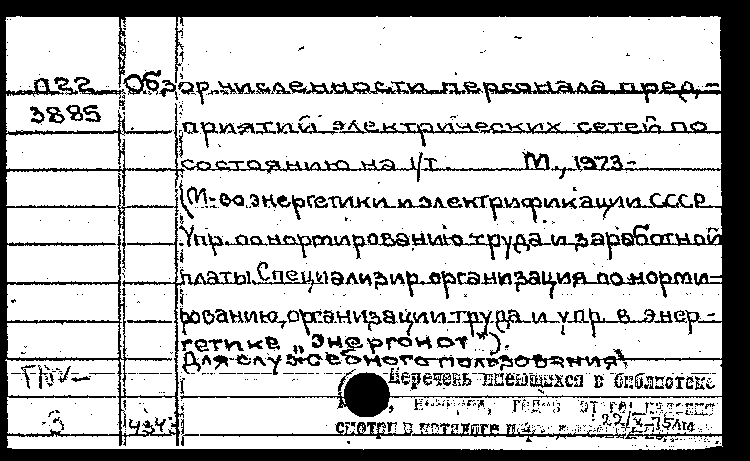 П22 Обзор численности персонала пред-
3885
приятий электрических сетей по
состоянию на 1/I. М., 1973-
(М-во энергетики и электрификации СССР
Упр. по нормированию труда и заработной
платы. Специализир. организация по норми-
рованию, организации труда и упр. в энер-
гетике „Энергонот").
Для служебного пользования
Перечень имеющихся в библиотеке
номеров, годов
3 4343 22/X-75
смотри в каталоге